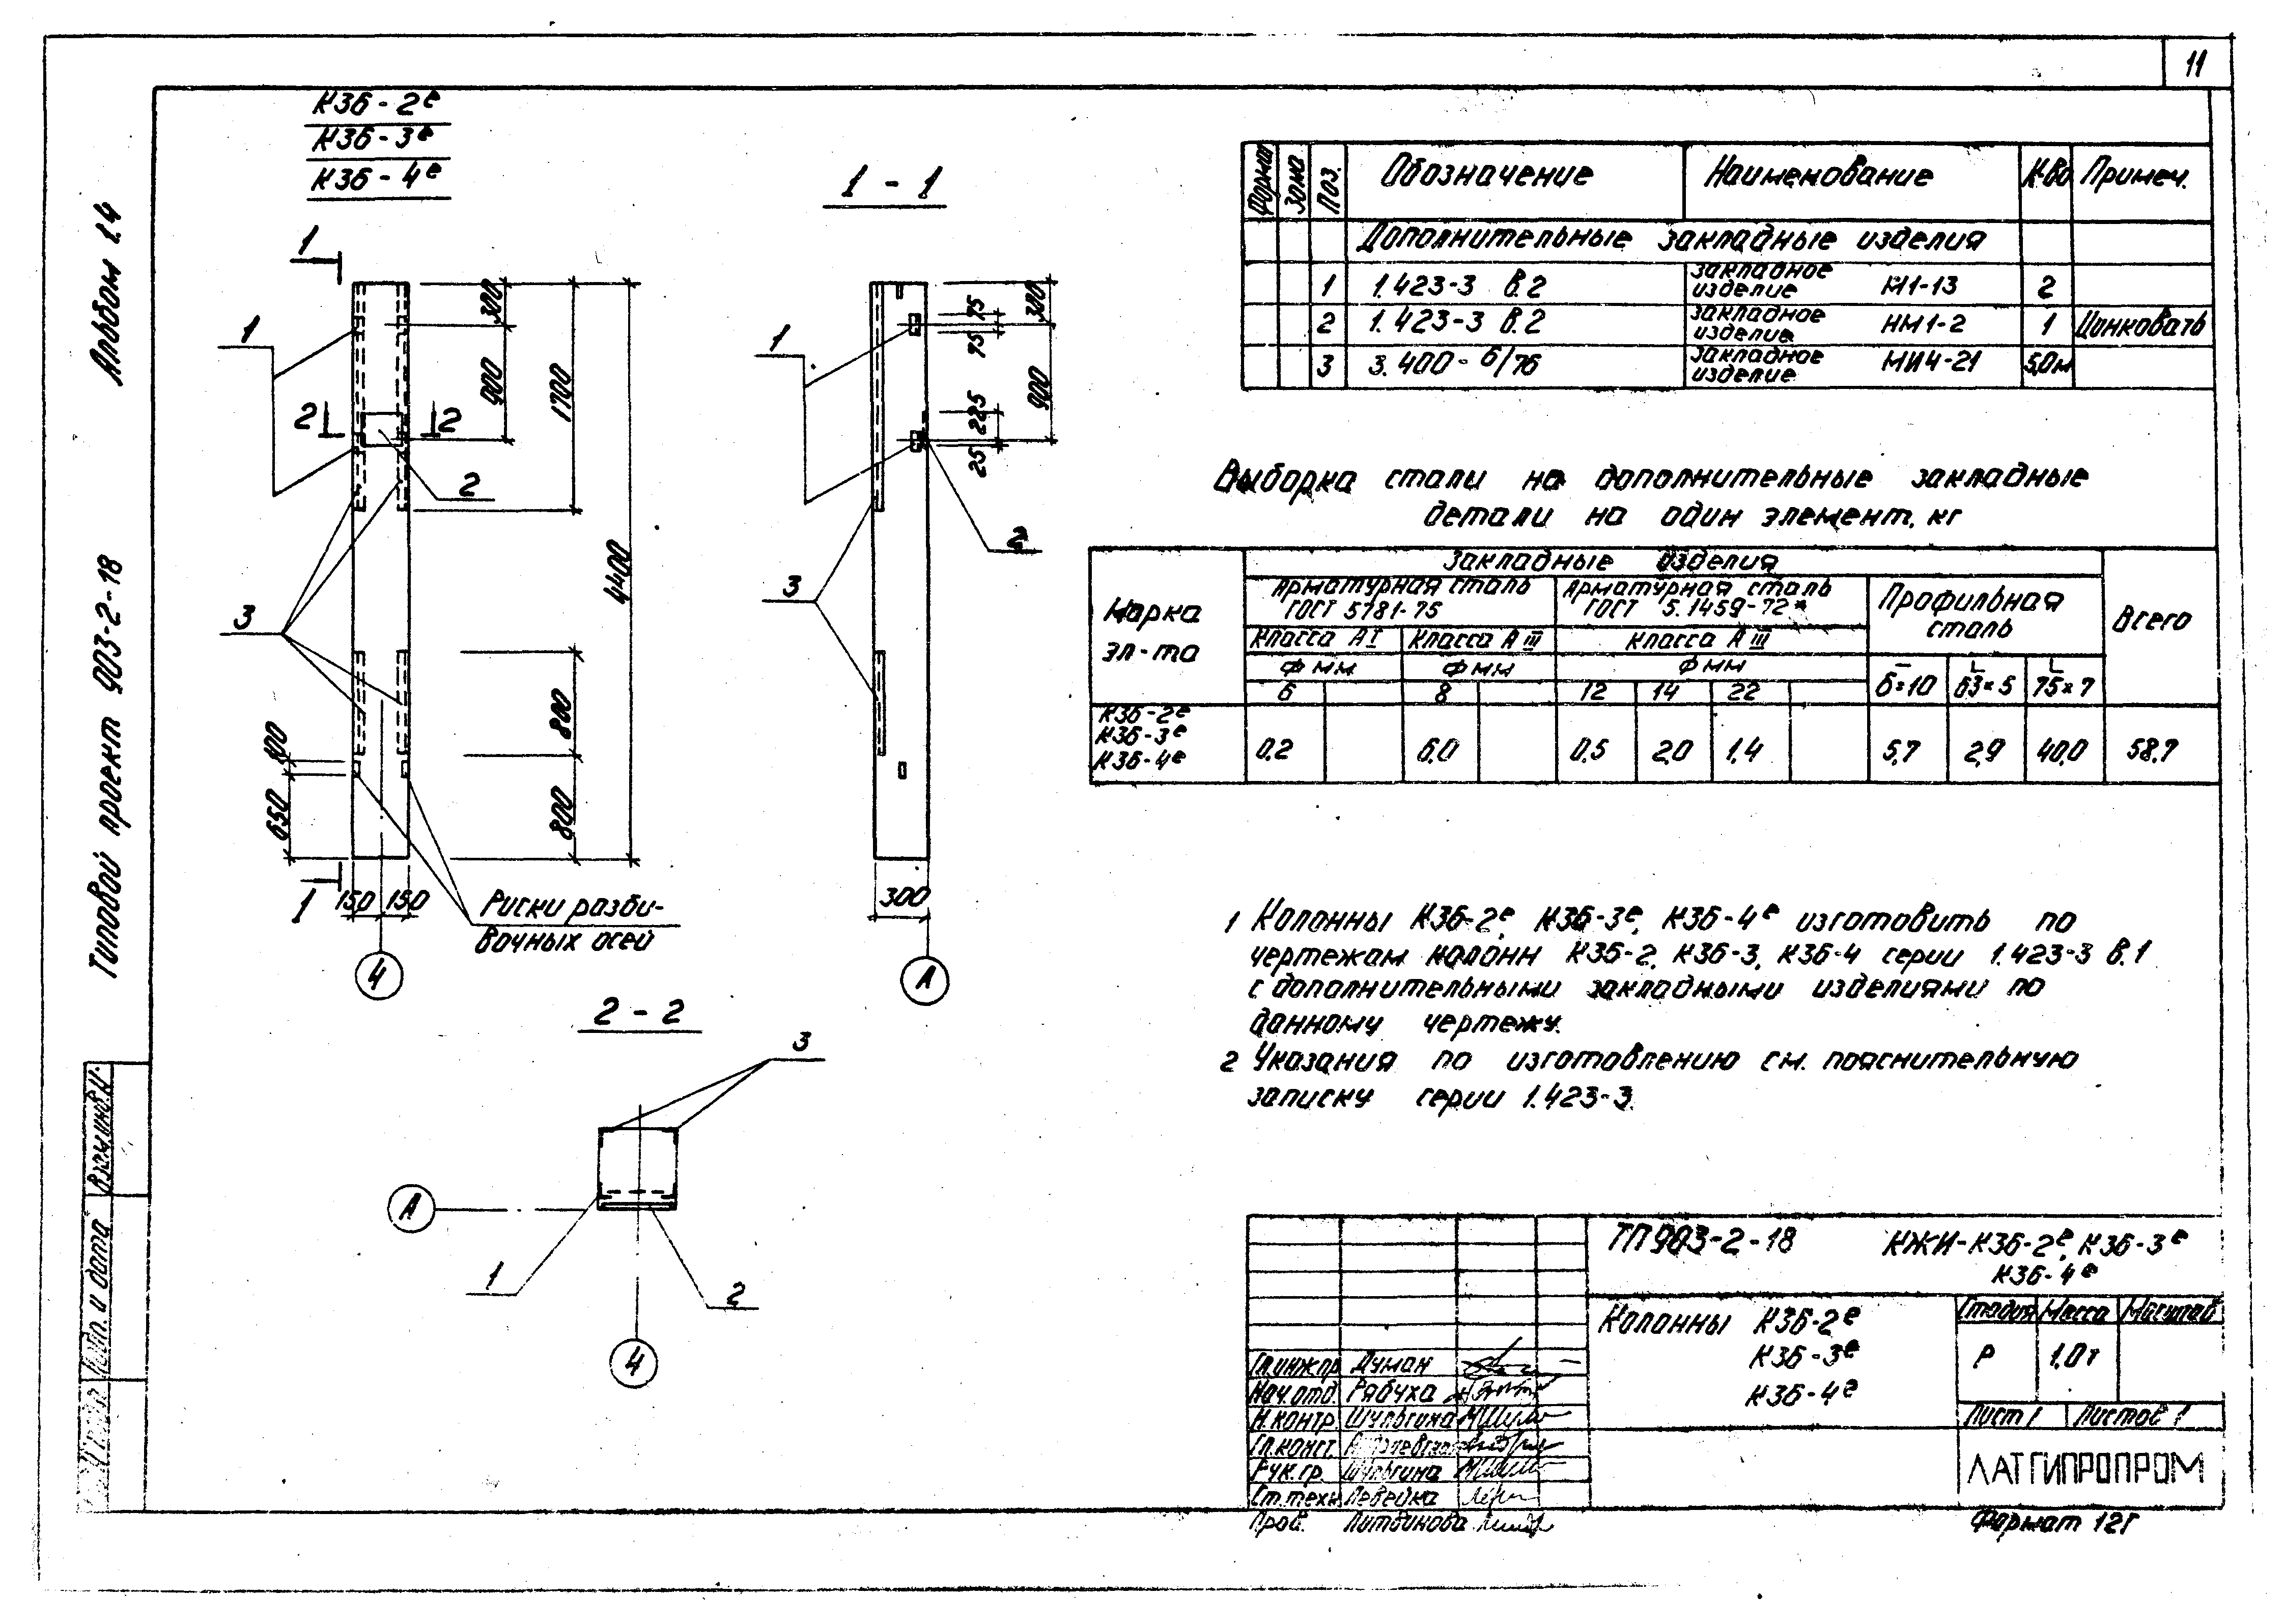 11
Альбом 1.4
Типовой проект 903-2-18
Взам.инв.N
Подп. и дата
К36-2е
К36-3е
К36-4е
1
1
2 2
2
3
300
900
1700
4400
800
800
100
650
1
150 150
Риски разби-
вочных осей
4
1-1
1
3
2
75
75
225
25
300
900
300
А
2-2
3
А
1
2
4
Формат Зона Поз. Обозначение Наименование К-во Примеч.
Дополнительные закладные изделия
1 1.423-3 В.2 закладное изделие М1-13 2
2 1.423-3 В.2 закладное изделие НМ1-2 1 Цинковать
3 3.400-6/76 закладное изделие МИ4-21 5,0м
Выборка стали на дополнительные закладные
детали на один элемент, кг
Марка эл-та
Закладные изделия
Всего
Арматурная сталь ГОСТ 5781-75
Арматурная сталь ГОСТ 5.1459-72*
Профильная сталь
Класса АI Класса АIII класса АIII
Фмм Фмм Фмм
6 8 12 14 22 δ=10 63×5 75×7
К36-2е
К36-3е
К36-4е
0.2 6.0 0.5 2.0 1.4 5,7 2,9 40,0 58.7
1 Колонны К36-2е, К36-3е, К36-4е изготовить по
чертежам колонн К36-2, К36-3, К36-4 серии 1.423-3 В.1
с дополнительными закладными изделиями по
данному чертежу.
2 Указания по изготовлению см. пояснительную
записку серии 1.423-3.
ТП 903-2-18 КЖИ-К36-2е, К36-3е
К36-4е
Колонны К36-2е
К36-3е
К36-4е
Стадия Масса Масштаб
Р 1.0т
Лист 1 Листов 1
ЛАТГИПРОПРОМ
Гл.инж.пр. Думан
Нач.отд. Рябуха
Н.контр. Шульгина
Гл.конст.
Рук.гр. Шульгина
Ст.техн. Левейка
Пров. Литвинова
Формат 12Г